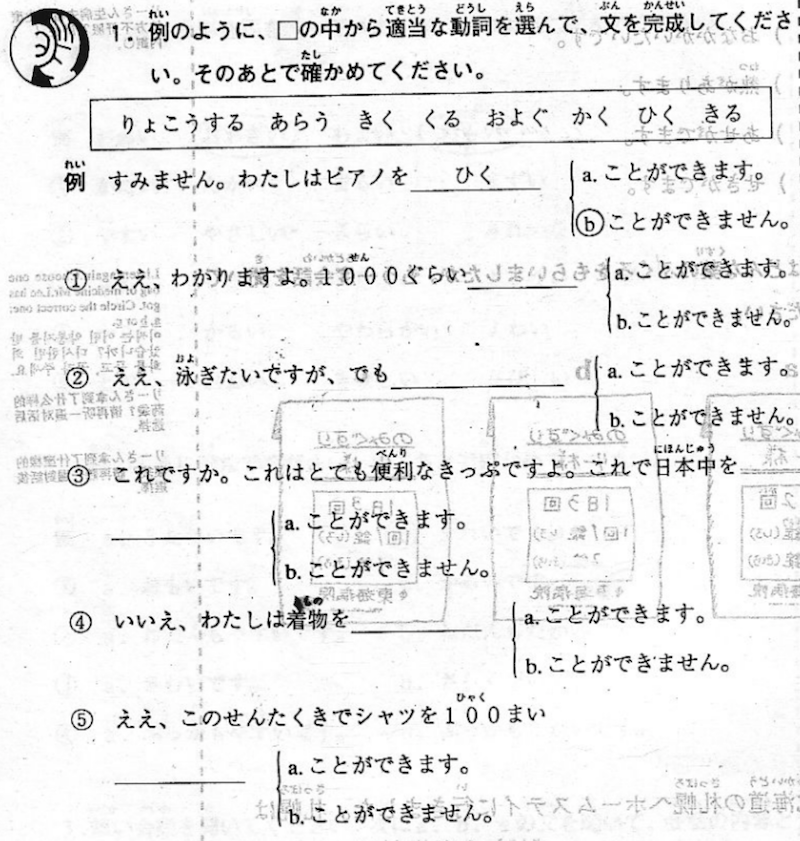 1. 例のように、□の中から適当な動詞を選んで、文を完成してくださ
い。そのあとで確かめてください。
りょこうする あらう きく くる およぐ かく ひく きる
例 すみません。わたしはピアノを ひく
a. ことができます。
b ことができません。
① ええ、わかりますよ。1000ぐらい
a. ことができます。
b. ことができません。
② ええ、泳ぎたいですが、でも
a. ことができます。
b. ことができません。
③ これですか。これはとても便利なきっぷですよ。これで日本中を
a. ことができます。
b. ことができません。
④ いいえ、わたしは着物を
a. ことができます。
b. ことができません。
⑤ ええ、このせんたくきでシャツを100まい
a. ことができます。
b. ことができません。